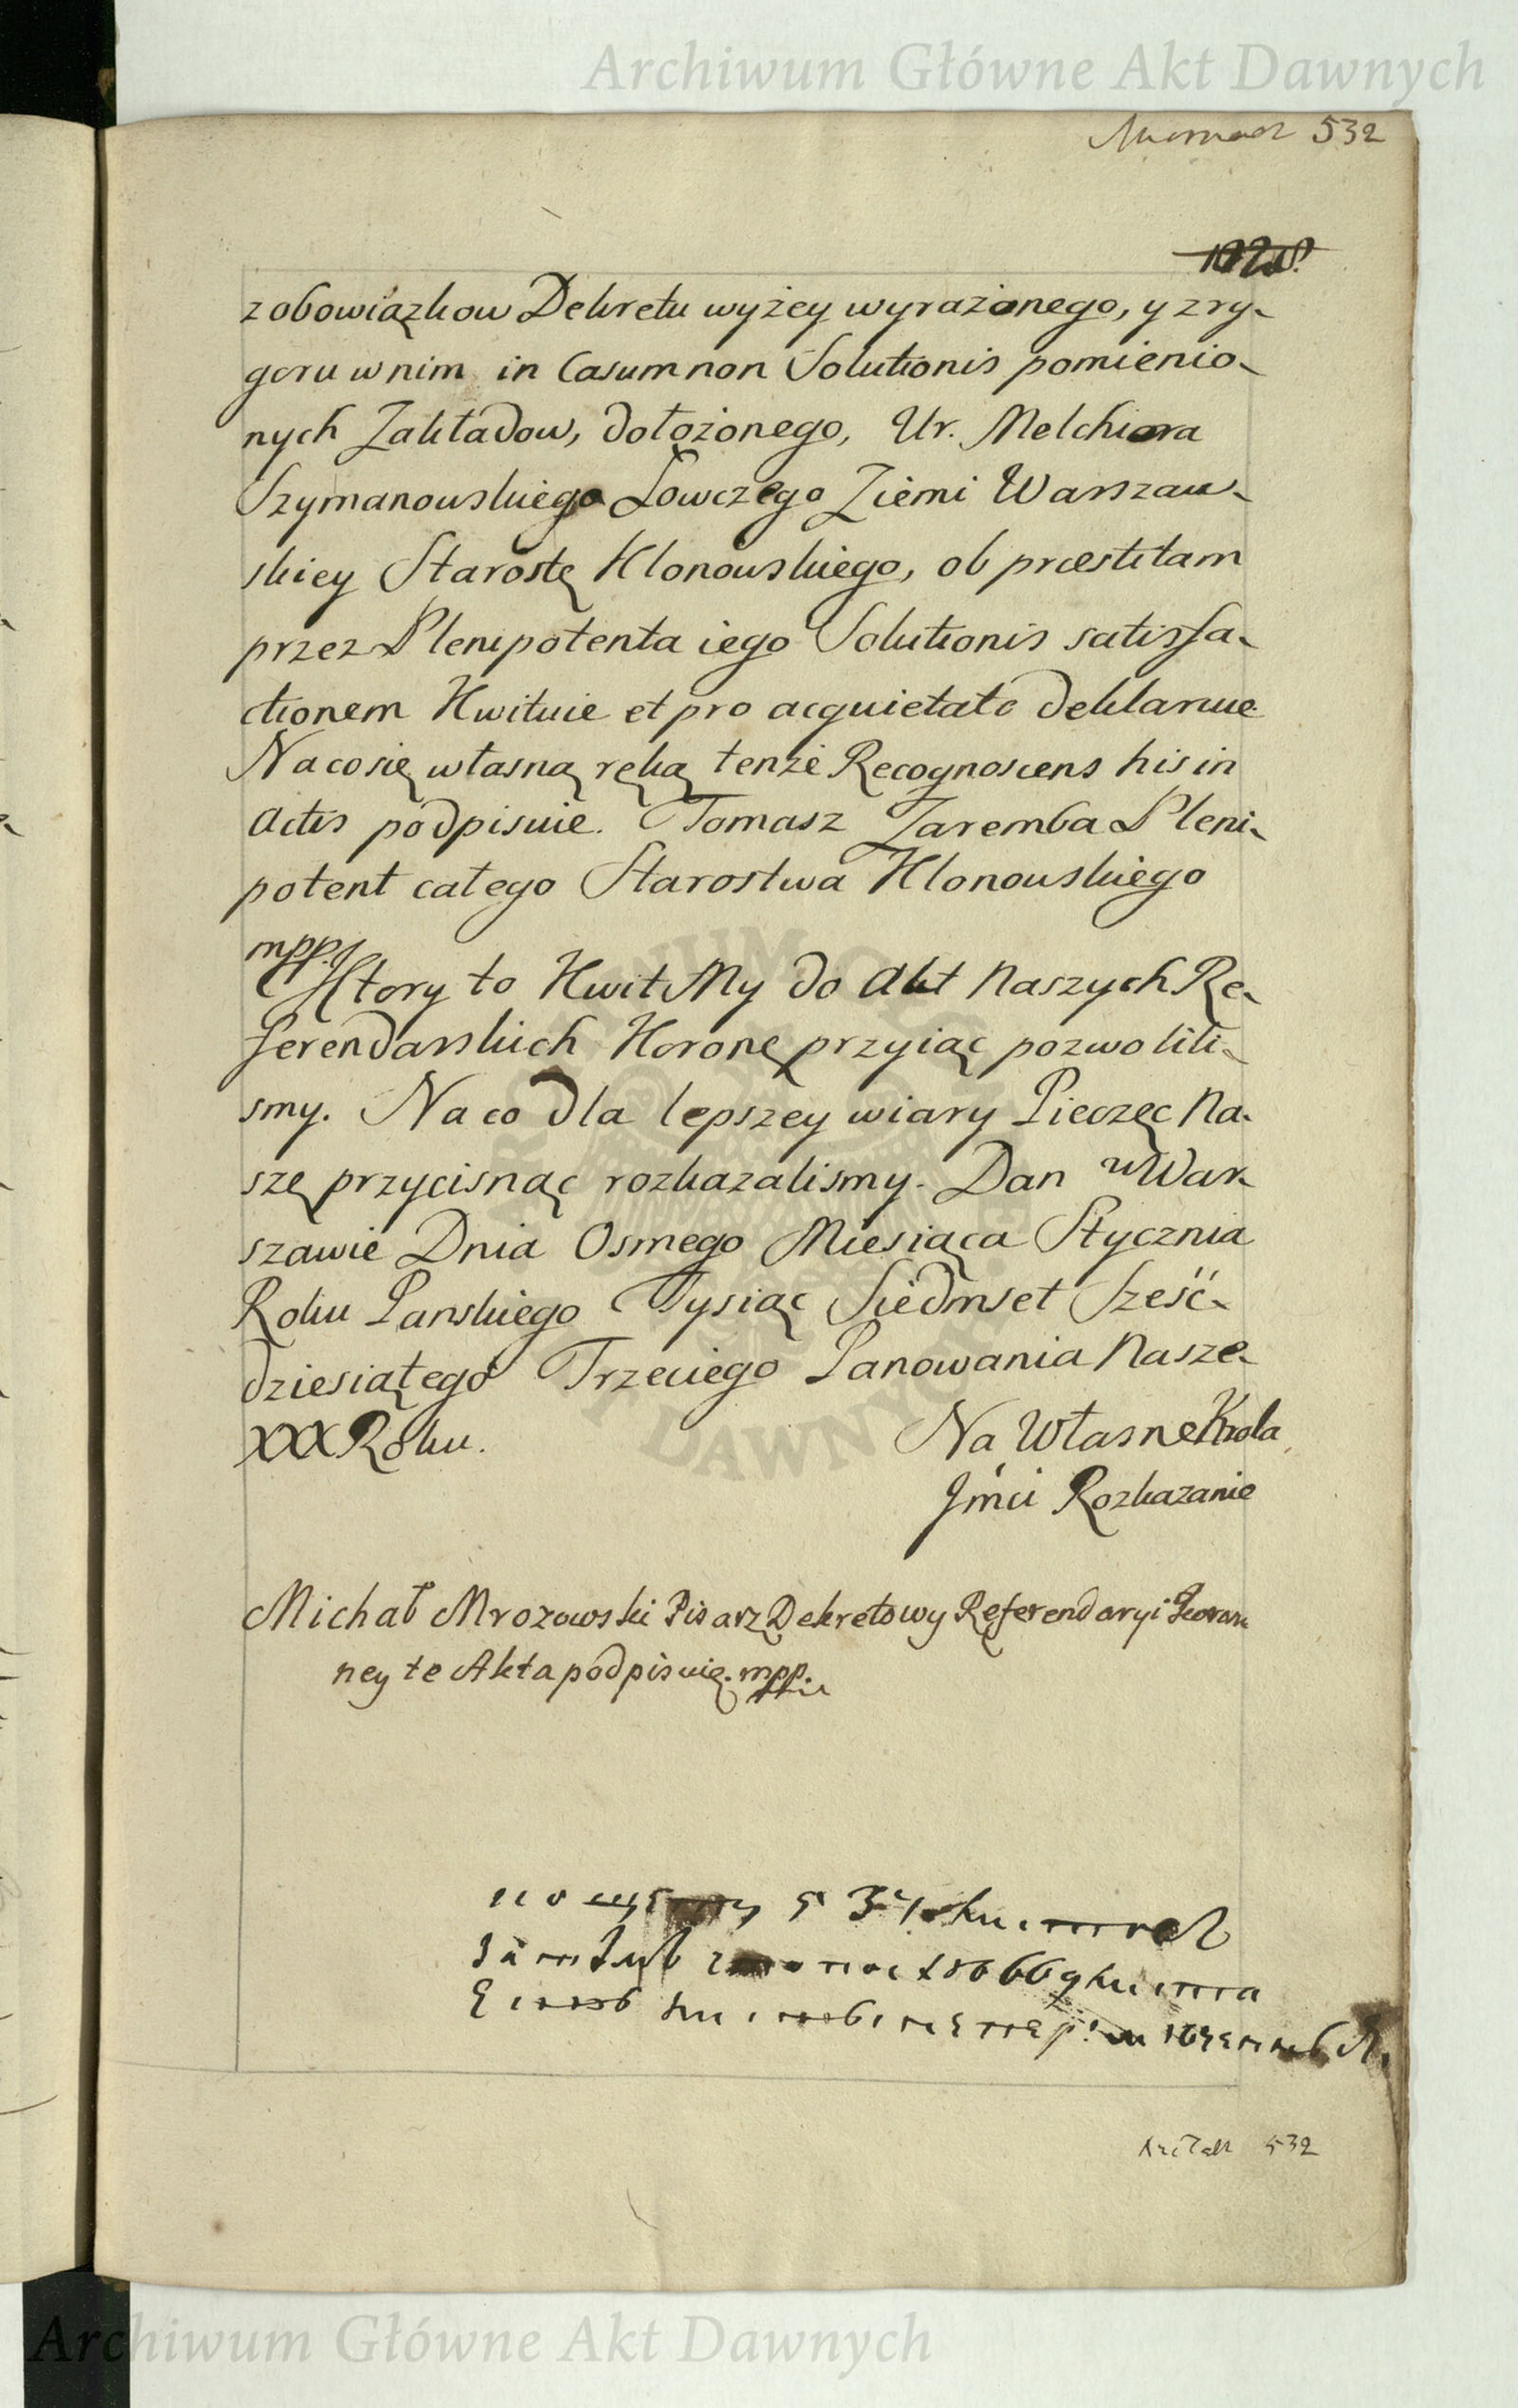 Archiwum Główne Akt Dawnych
532
z obowiązkow Dekretu wyżey wyrażonego, y z ry-
goru w nim in Casum non Solutionis pomienio-
nych Zakładow, dołożonego, Ur. Melchiora
Szymanowskiego Łowczego Ziemi Warszaw-
skiey Starostę Klonowskiego, ob præstitam
przez Plenipotenta iego Solutionis satisfa-
ctionem Kwituie et pro acquietato deklaruie
Na co się własną ręką tenże Recognoscens his in
Actis podpisuie. Tomasz Zaremba Pleni-
potent całego Starostwa Klonowskiego
mpp.
Ktory to Kwit My do Akt Naszych Re-
ferendarskich Koronę przyiąc pozwolili-
smy. Na co dla lepszey wiary Pieczęc Na-
szę przycisnąc rozkazalismy. Dan w War-
szawie Dnia Osmego Miesiąca Stycznia
Roku Panskiego Tysiąc Siedmset Sześć-
dziesiątego Trzeciego Panowania Nasze-
XXX Roku. Na Własne Krola
Jmći Rozkazanie
Michał Mrozowski Pisarz Dekretowy Referendaryi Koron
ney te Akta podpisuię. mpp.
532
Archiwum Główne Akt Dawnych